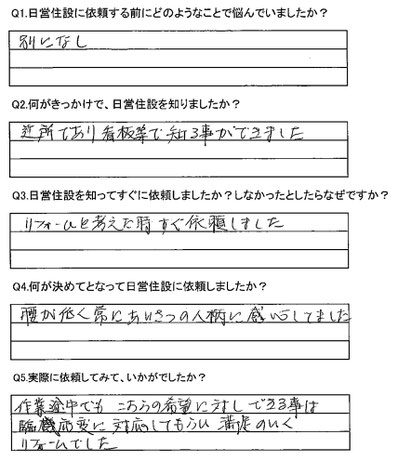 Q1.日営住設に依頼する前にどのようなことで悩んでいましたか？
別になし
Q2.何がきっかけで、日営住設を知りましたか？
近所であり看板等で知る事ができました
Q3.日営住設を知ってすぐに依頼しましたか？しなかったとしたらなぜですか？
リフォームと考えた時すぐ依頼しました
Q4.何が決めてとなって日営住設に依頼しましたか？
腰が低く常にあいさつの人柄に感心してました
Q5.実際に依頼してみて、いかがでしたか？
作業途中でも こちらの希望に対しできる事は
臨機応変に対応してもらい満足のいく
リフォームでした